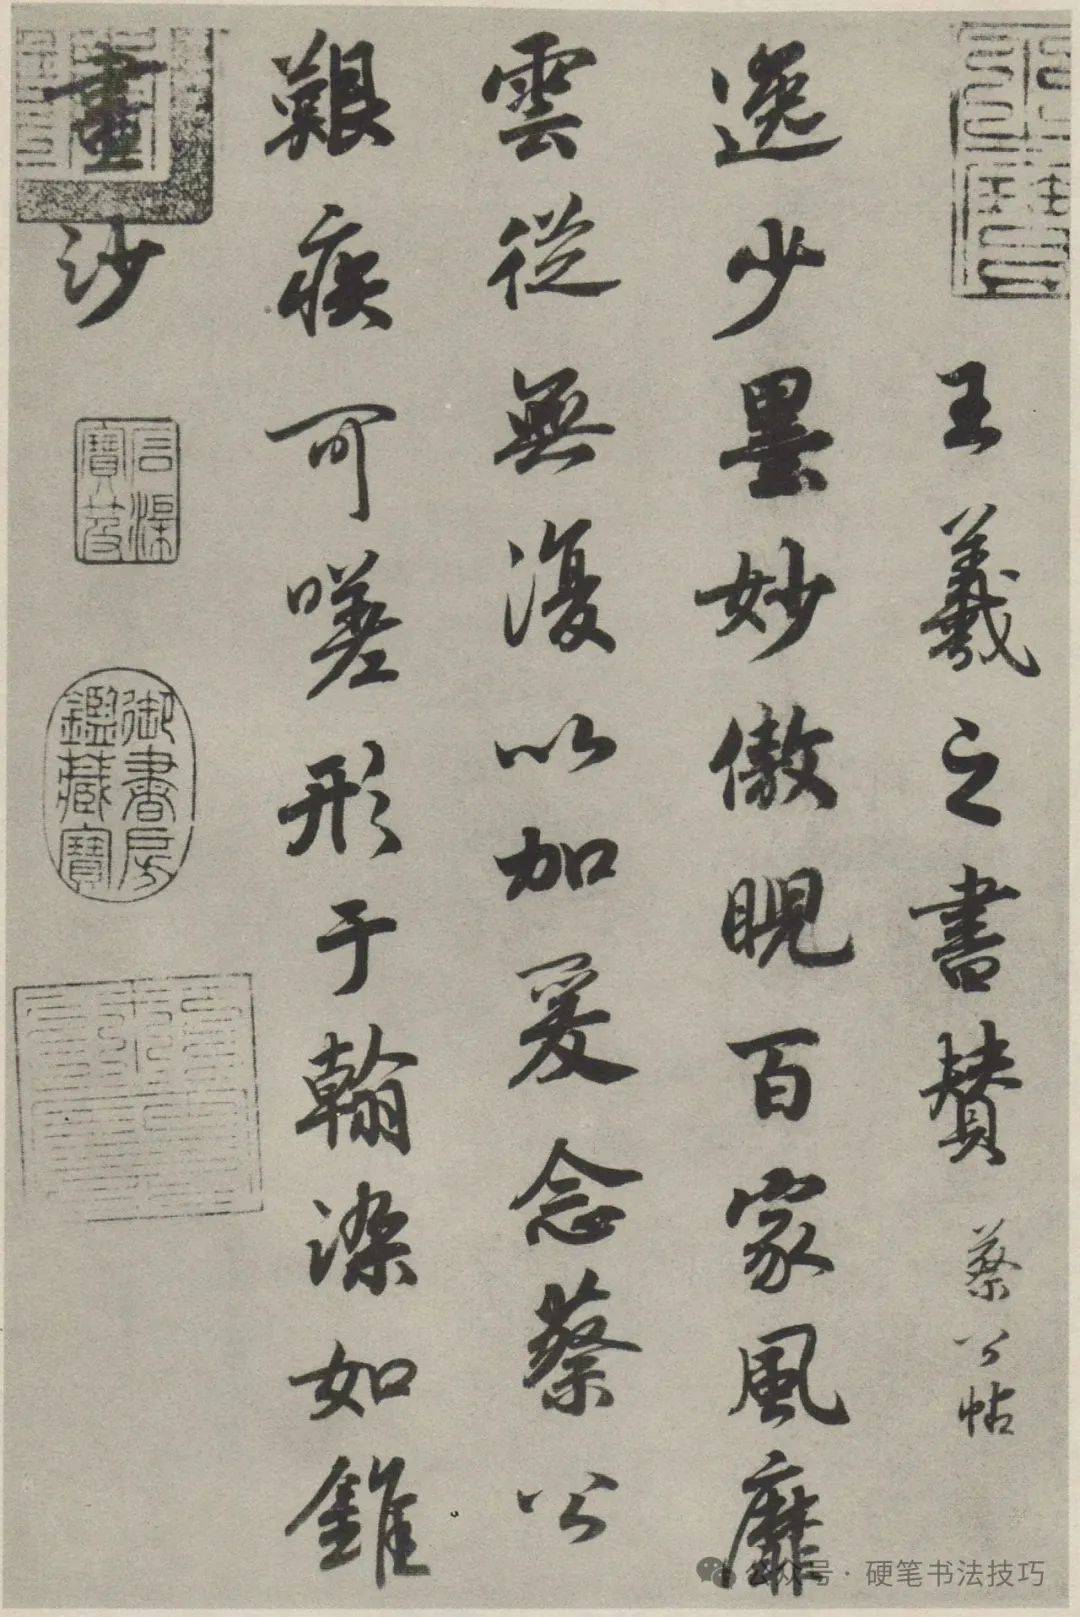 王羲之書贊 蔡公帖
逸少曇妙傲睨百家風靡
雲從無復以加爰念蔡公
艱疾可嗟形于翰染如錐
畫沙
御書房鑑藏寶
公众号·硬笔书法技巧